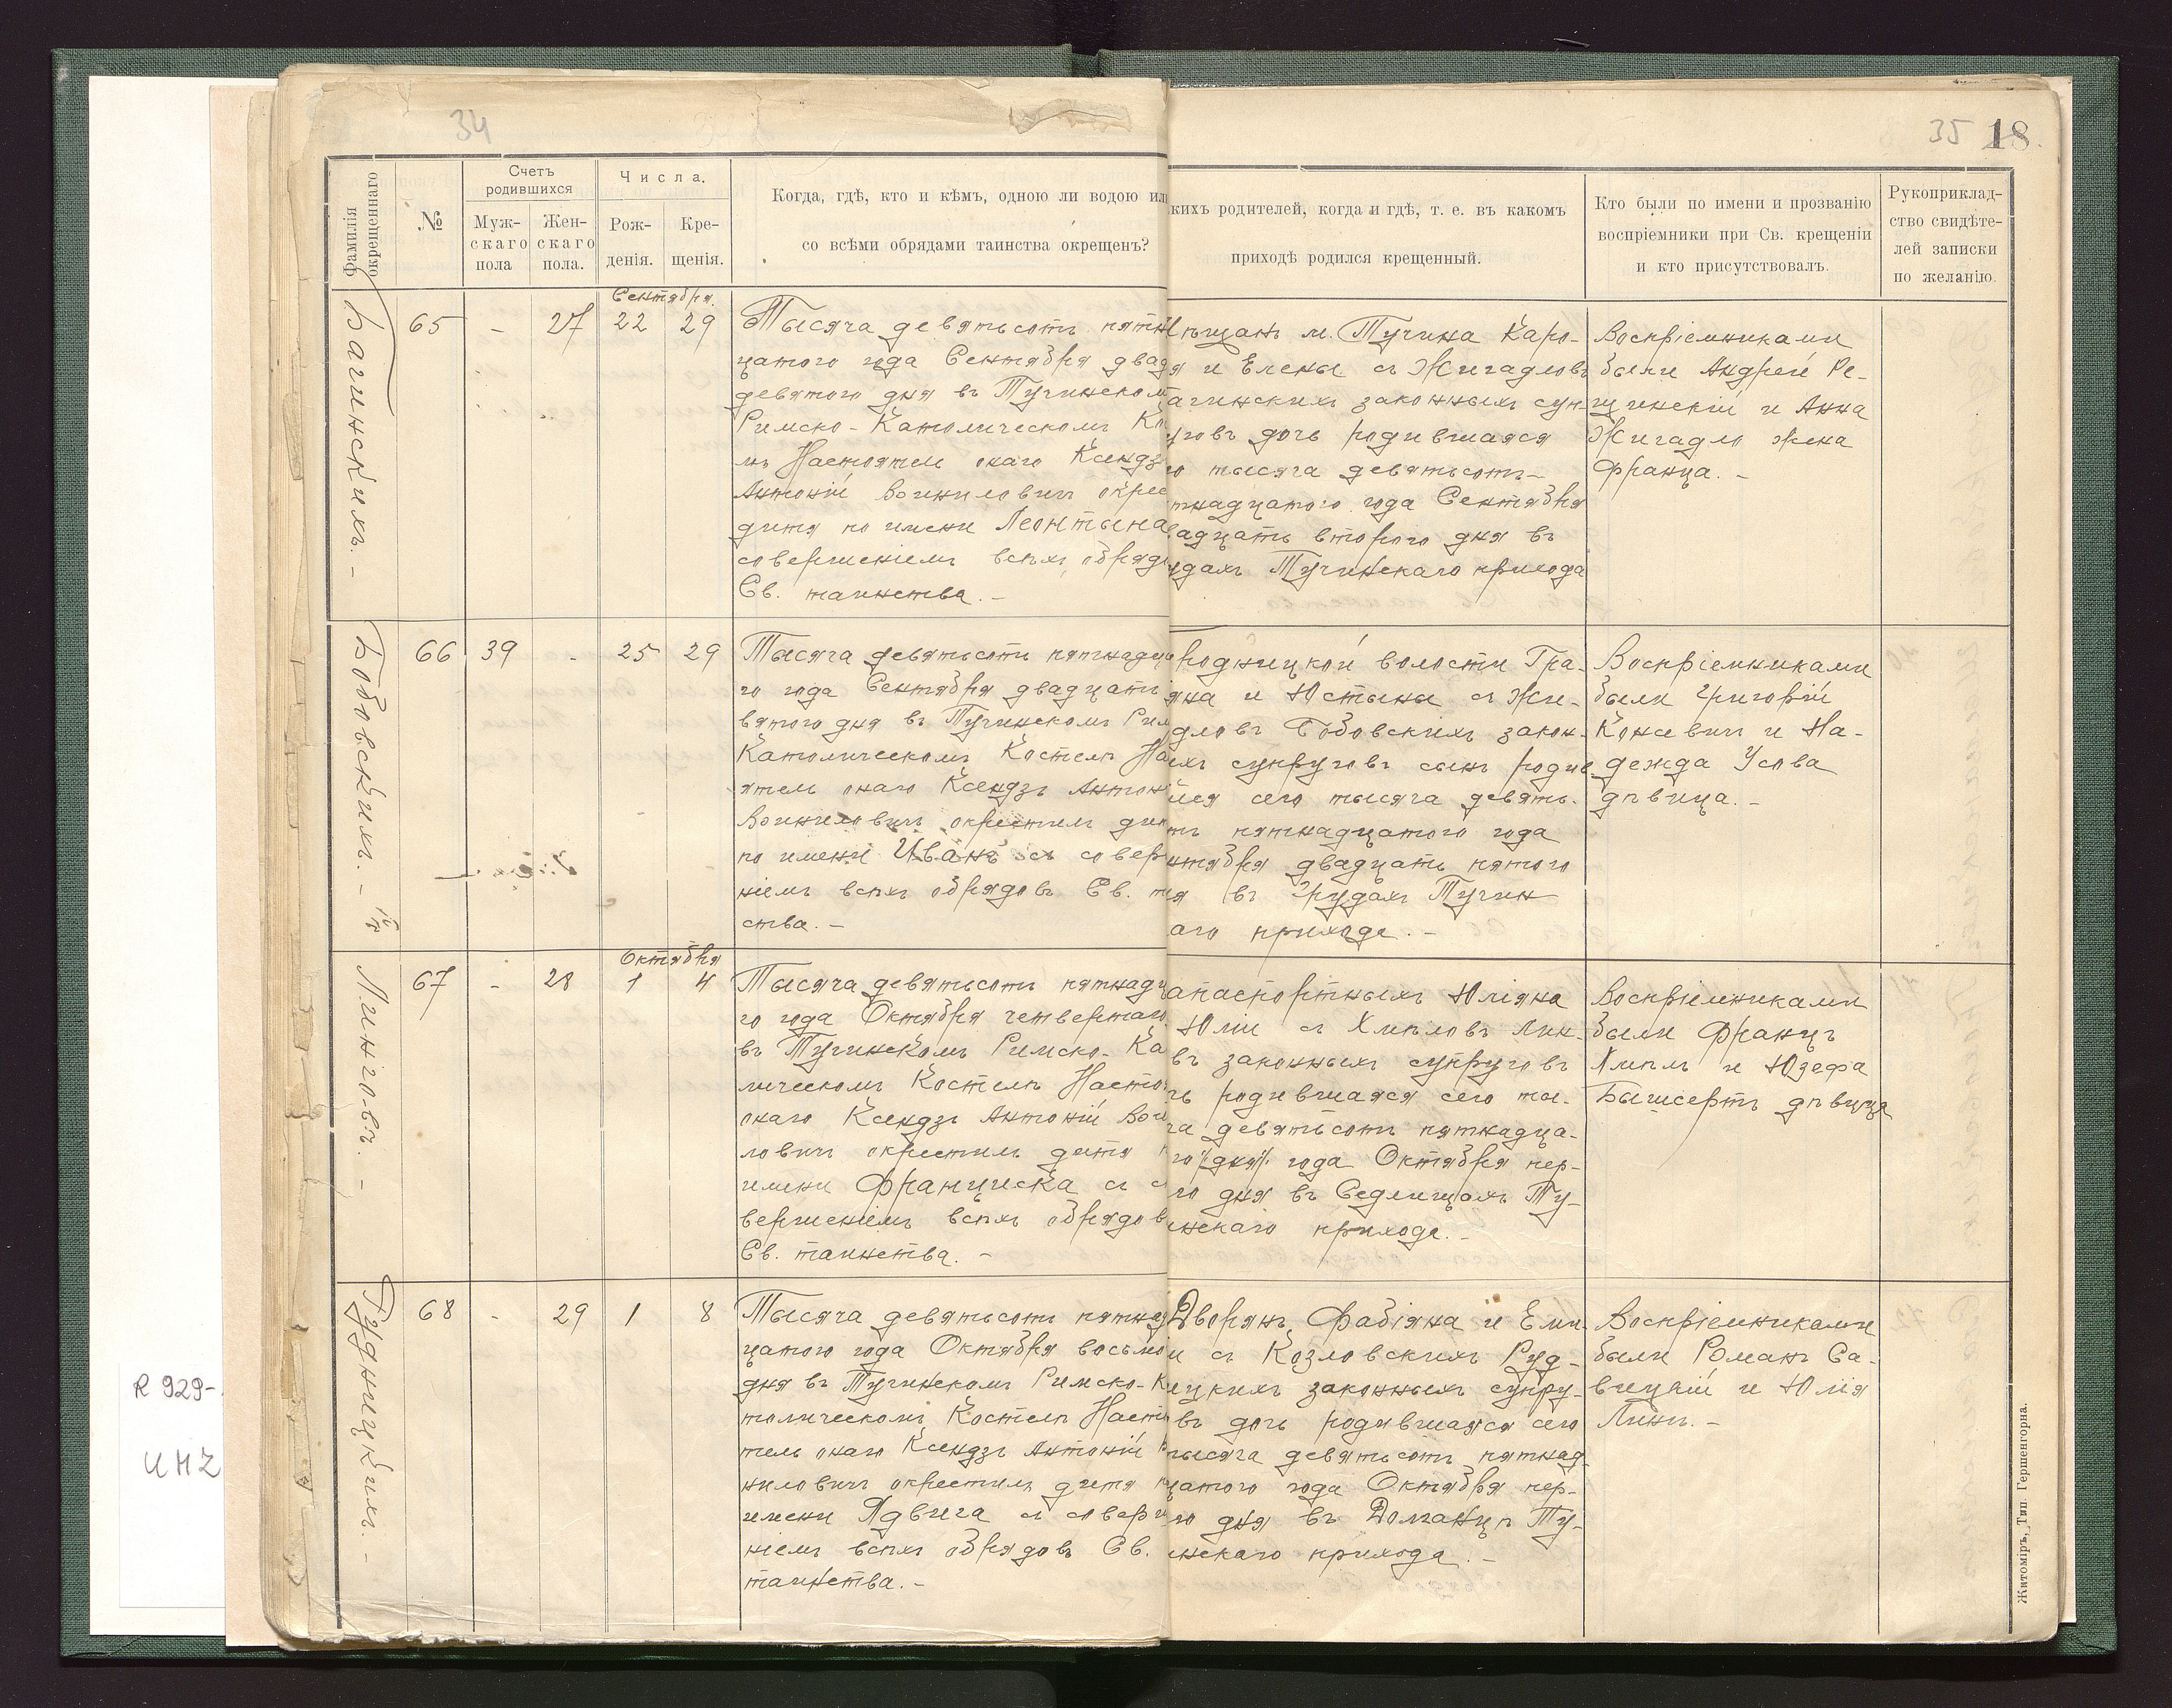 34
35 18.
Фамилія окрещеннаго
№
Счетъ родившихся
Муж-скаго пола
Жен-скаго пола.
Числа.
Рож-денія.
Кре-щенія.
Когда, гдѣ, кто и кѣмъ, одною ли водою ил
со всѣми обрядами таинства окрещенъ?
кихъ родителей, когда и гдѣ, т. е. въ какомъ
приходѣ родился крещенный.
Кто были по имени и прозванію
воспріемники при Св. крещеніи
и кто присутствовалъ.
Рукоприклад-
ство свидѣте-
лей записки
по желанію.
Багинскихъ. -
65 - 27
Сентября.
22 29
Тысяча девятьсотъ пятн
цатого года Сентября двад
девятого дня въ Тучинском
Римско-Католическомъ Ко
лѣ Настоятель онаго Ксендз
Антоній Войниловичъ окрес
дитя по имени Леонтына
совершеніемъ всѣхъ обрядо
Св. таинства. -
ѣщанъ м. Тучина Каро-
я и Елены съ Жигадловъ
агинскихъ законныхъ суп-
уговъ дочь родившаяся
о тысяча девятьсотъ-
тнадцатого года Сентября
адцать второго дня въ
удахъ Тучинскаго прихода
Воспріемниками
были Андрей Ре-
щинскій и Анна
Жигадло жена
Франца. -
Бобовскихъ. -
66 39 - 25 29
Тысяча девятьсотъ пятнадца
го года Сентября двадцать
вятого дня въ Тучинскомъ Рим
Католическомъ Костелѣ На
ятель онаго Ксендзъ Антон
Войниловичъ окрестилъ дит
по имени Иванъ съ совер
ніемъ всѣхъ обрядовъ Св. т
ства. -
родницкой волости Гра-
яна и Юстыны съ Жи-
дловъ Бобовскихъ закон-
ыхъ супруговъ сынъ родив
ійся сего тысяча девять-
тъ пятнадцатого года
нтября двадцать пятого
я въ Грудахъ Тучин
аго прихода. -
Воспріемниками
были Григорій
Концевичъ и На-
дежда Усова
дѣвица. -
Линговъ. -
67 - 28
Октября
1 4
Тысяча девятьсотъ пятнадц
го года Октября четвертаго
въ Тучинскомъ Римско-Ка
лическомъ Костелѣ Насто
онаго Ксендзъ Антоній Вой
ловичъ окрестилъ дитя
имени Франциска съ с
вершеніемъ всѣхъ обрядов
Св. таинства. -
апаспортныхъ Юліяна
Юліи съ Хмѣловъ Лин-
въ законныхъ супруговъ
ь родившаяся сего ты-
ча девятьсотъ пятнадца-
го дня года Октября пер-
го дня въ Седлищахъ Ту-
инскаго прихода. -
Воспріемниками
были Францъ
Хмѣль и Юзефа
дѣвица
Рудницкихъ. -
68 - 29 1 8
Тысяча девятьсотъ пятнад
цатого года Октября восьмо
дня въ Тучинскомъ Римско-К
толическомъ Костелѣ Насто
тель онаго Ксендзъ Антоній
ниловичъ окрестилъ дитя п
имени Ядвига съ соверш
ніемъ всѣхъ обрядовъ Св.
таинства. -
Дворянъ Фабіяна и Еми-
и съ Козловскихъ Руд-
ицкихъ законныхъ супру-
въ дочь родившаяся сего
тысяча девятьсотъ пятнад-
цатого года Октября пер-
го дня въ Ту-
инскаго прихода. -
Воспріемниками
были Романъ Са-
вицкій и Юлія
Лингъ. -
Житоміръ, Тип. Гершенгорна.
R 929-